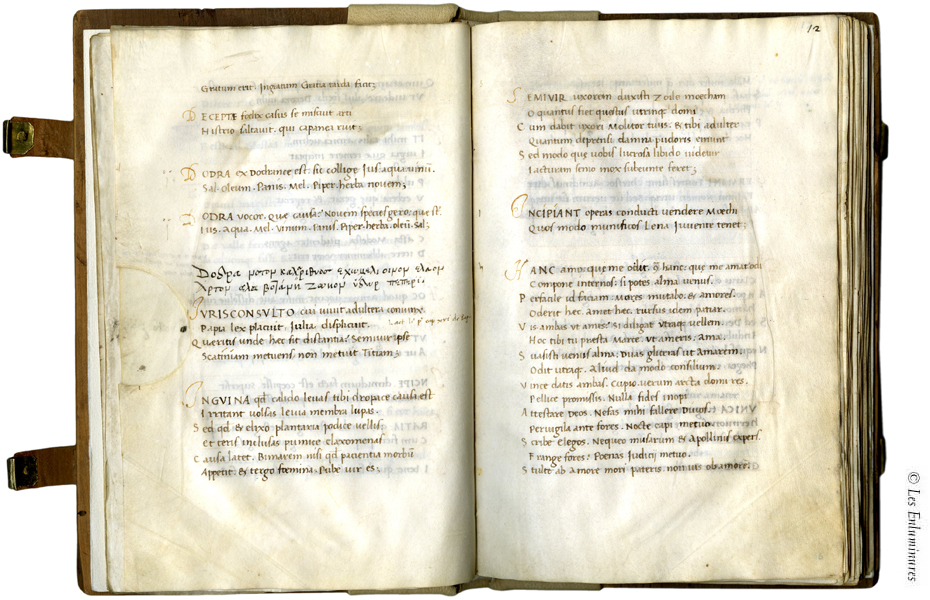 Gratum erit. Ingratum Gratia tarda facit;
DECEPTAE fœdix casus se miscuit arti
Histrio saltauit. qui capaneus ruit;
DODRA ex Dodrante est. sic collige Ius. aqua. uinū.
Sal. Oleum. Panis. Mel. Piper. herba nouem;
DODRA uocor. que causa? Nouem species gero. que st̄.
Ius. Aqua. Mel. Vinum. Panis. Piper. herba. oleū. sal;
IURISCONSULTO cui uiuit adultera coniunx
Papia lex placuit. Iulia displicuit.
Queritis unde hec sit distantia? Semiuir ipse
Scatiniam metuens. non metuit Titiam;
INGVINA qd calido leuas tibi dropace causa est
Irritant uolsas leuia membra lupas.
Sed qd & elixo plantaria podice uellis
et teris inclusas pumice clazomenas
Causa latet. Bimarem nisi qd pacientia morbū
Appetit. & tergo fœmina. Pube uir es;
12
SEMIVIR uxorem duxisti Zoile moecham
O quantus fiet questus utrinque domi
Cum dabit uxori Molitor tuus. & tibi adulter
Quantum deprensi damna pudoris emunt
Sed modo que uobis lucrosa libido uidetur
Iacturam senio mox subeunte feret;
INCIPIANT operas conducti uendere Moechi
Quos modo munificos Lena Iuuente tenet;
HANC amo. que me odit. 9̄ hanc. que me amat odi
Compone internos. si potes alma uenus.
Perfacile id faciam. Mores mutabo. & amores.
Oderit hec. Amet hec. rursus idem patiar.
Vis ambas ut ames? Si diligat utraque uellem.
Hoc tibi tu presta Marce. ut ameris. ama.
Suasisti uenus alma. Duas gliceras ut amarem.
Odit utraq. Aliud da modo consilium.
Vince datis ambas. Cupio. uerum arcta domi res.
Pellice promissis. Nulla fides inopi
Attestare Deos. Nefas mihi fallere Diuos.
Peruigila ante fores. Nocte capi metuo.
Scribe elegos. Nequeo musarum & Apollinis expers.
Frange fores. Poenas Iudicij metuo.
Stulte ab amore mori pateris. non uis ob amorē.
© Les Enluminures